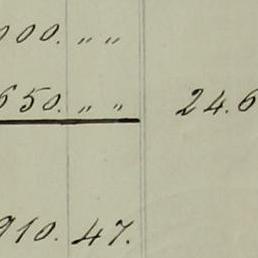 000. „ „
650. „ „ 24.6
910. 47.